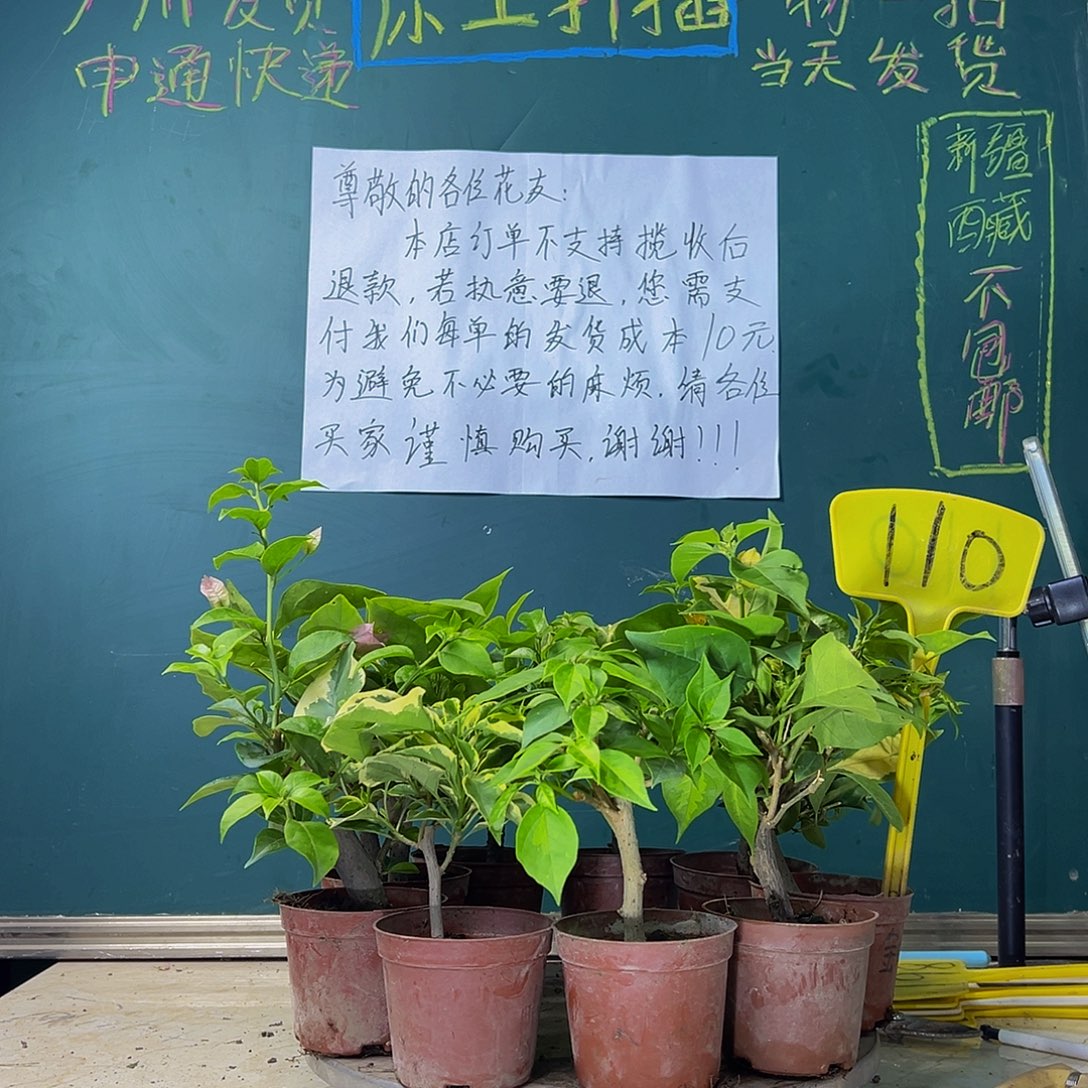 广州发货
原土扦插
物一拍
申通快递
当天发货
新疆
西藏
不包邮
尊敬的各位花友：
本店订单不支持揽收后
退款，若执意要退，您需支
付我们每单的发货成本10元.
为避免不必要的麻烦.请各位
买家谨慎购买，谢谢!!!
110